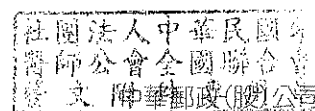 社團法人中華民國
醫師公會全國聯合會
文
中華郵政(股)公司